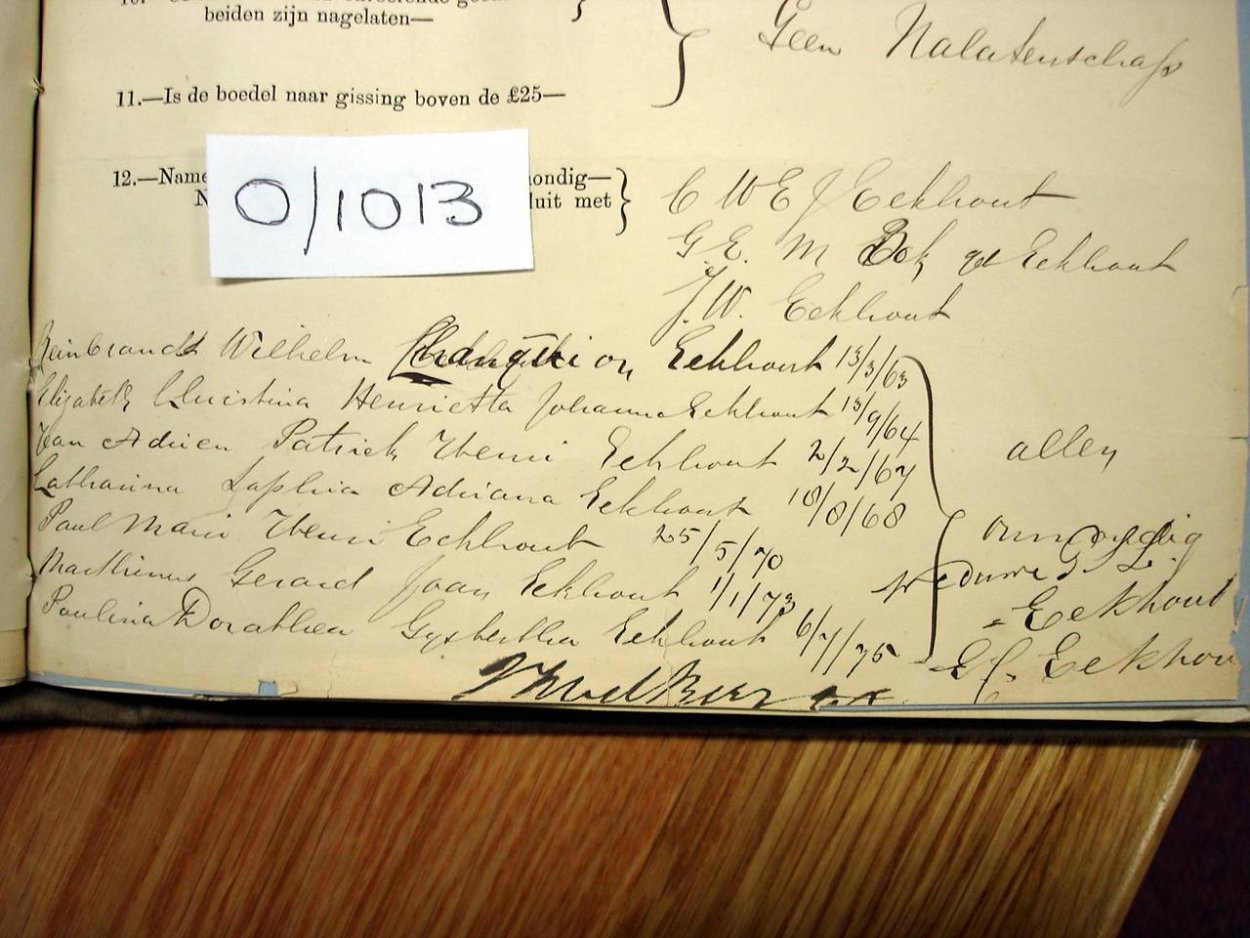 beiden zijn nagelaten—
Geen Nalatenschap
11.—Is de boedel naar gissing boven de £25—
12.—Name ondig—
N luit met
O/1013
C W E J Eekhout
G. E. M Bok geb Eekhout
J. W. Eekhout
Reinbrandt Wilhelm Changuion Eekhout 13/3/63
Elizabeth Christina Henrietta Johanna Eekhout 13/9/64
Jan Adrien Patrick Henri Eekhout 2/2/67
Catharina Sophia Adriana Eekhout 18/8/68
Paul Marie Henri Eekhout 25/5/70
Marthinus Gerard Joan Eekhout 1/1/73
Paulina Dorathea Gysbertha Eekhout 6/7/75
allen
onmondig
Weduwe G. L.
Eekhout
Eekhou